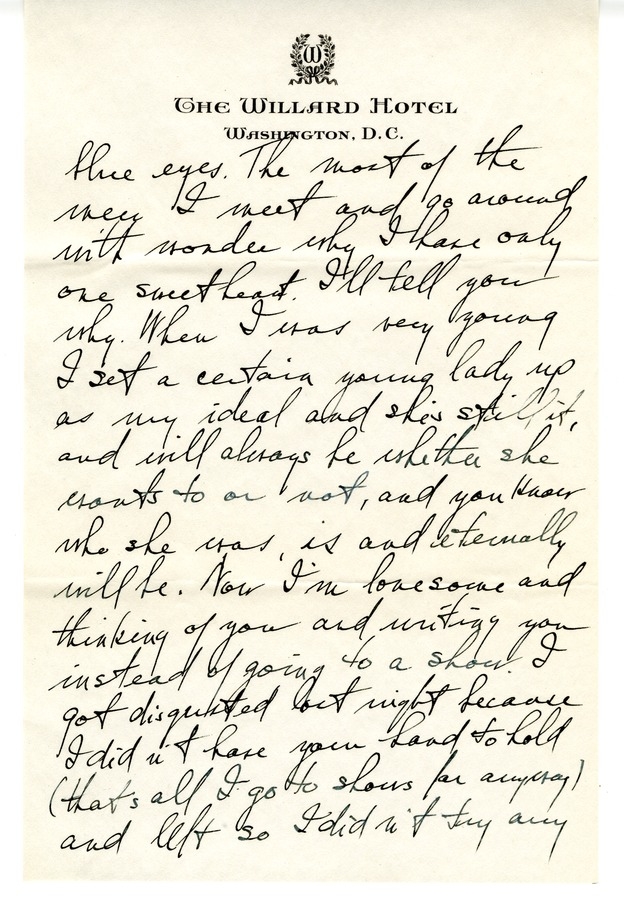 W
H
THE WILLARD HOTEL
WASHINGTON, D.C.
blue eyes. The most of the
men I meet and go around
with wonder why I have only
one sweetheart. I'll tell you
why. When I was very young
I set a certain young lady up
as my ideal and she's still it,
and will always be whether she
wants to or not, and you know
who she was, is and eternally
will be. Now I'm lonesome and
thinking of you and writing you
instead of going to a show. I
got disgusted last night because
I didn't have your hand to hold
(that's all I go to shows for anyway)
and left so I didn't try any